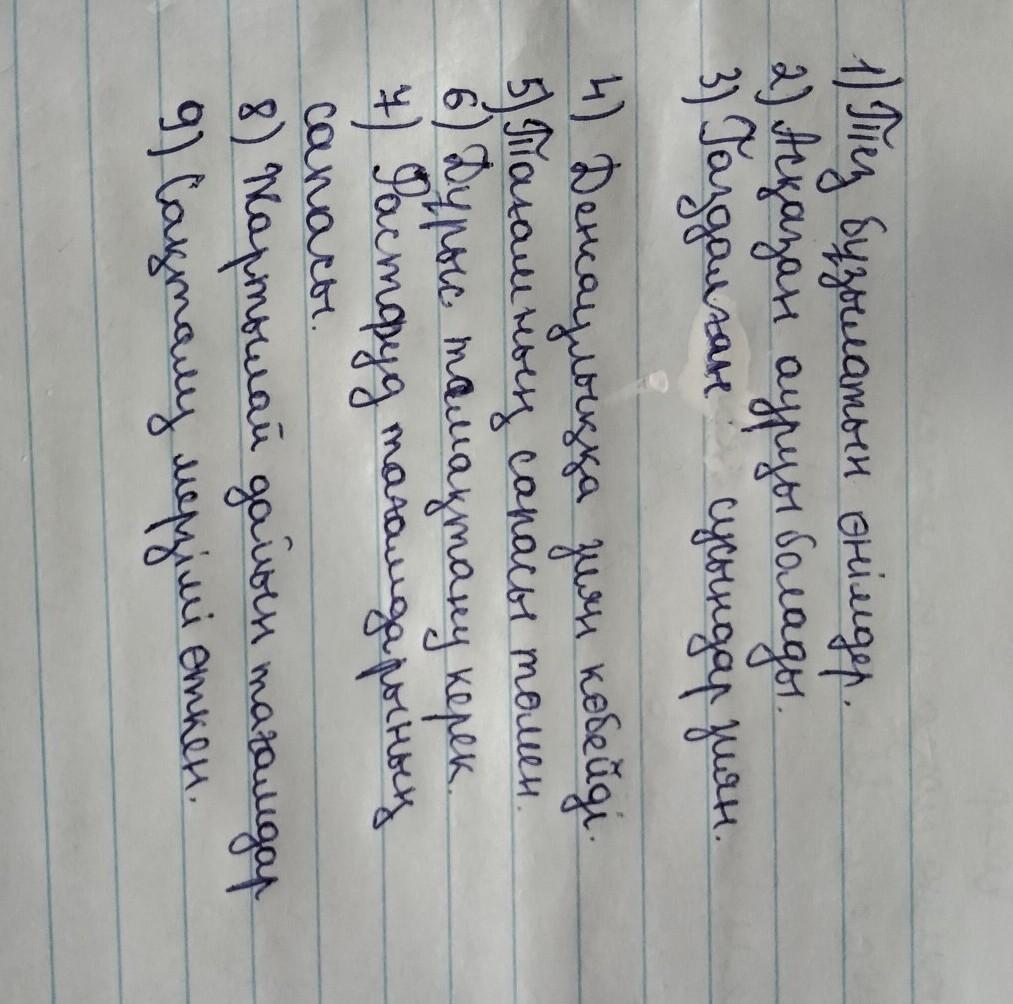 1) Тез бұзылатын өнімдер.
2) Асқазан ауруы болады.
3) Газдалған сусындар зиян.
4) Денсаулыққа зиян көбейді.
5) Тағамның сапасы төмен.
6) Дұрыс тамақтану керек.
7) Фастфуд тағамдарының
сапасы.
8) Жартылай дайын тағамдар
9) Сақталу мерзімі өткен.